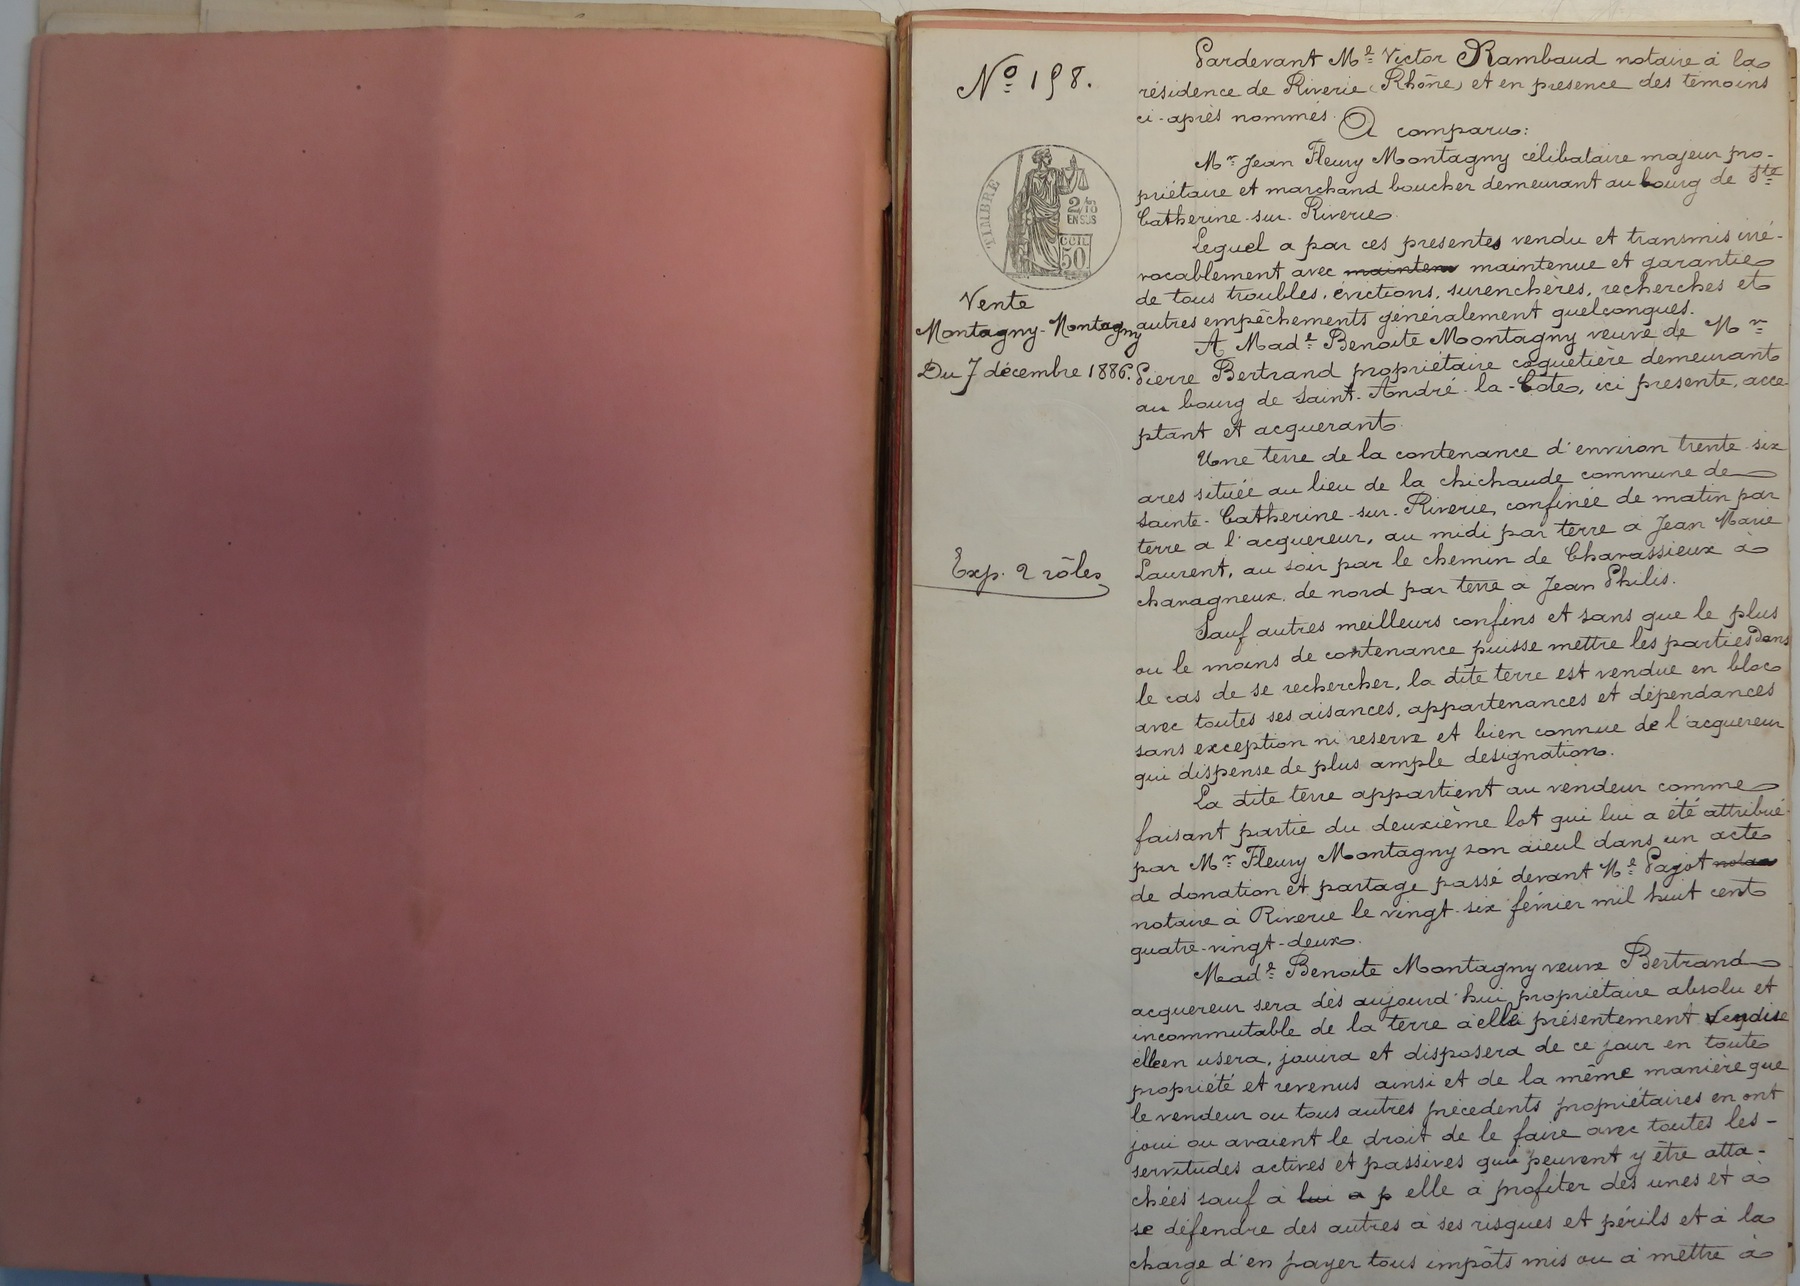 N° 198.
TIMBRE
2/10
EN SUS
50
Vente
Montagny-Montagny
Du 7 décembre 1886.
Exp. 2 rôles
Pardevant Me Victor Rambaud notaire à la
résidence de Riverie (Rhône) et en présence des témoins
ci-après nommés.
A comparu:
Mr Jean Fleury Montagny célibataire majeur pro-
priétaire et marchand boucher demeurant au bourg de Ste
Catherine-sur-Riverie.
Lequel a par ces présentes vendu et transmis irré-
vocablement avec mainten maintenue et garantie
de tous troubles, évictions, surenchères, recherches et
autres empêchements généralement quelconques.
A Made Benoite Montagny veuve de Mr
Pierre Bertrand propriétaire coquetière demeurant
au bourg de Saint-André-la-Côte, ici présente, acce-
ptant et acquerant.
Une terre de la contenance d'environ trente-six
ares située au lieu de la chichaude commune de
Sainte-Catherine-sur-Riverie, confinée de matin par
terre a l'acquereur, au midi par terre a Jean Marie
Laurent, au soir par le chemin de Chavassieux à
chavagneux. de nord par terre a Jean Philis.
Sauf autres meilleurs confins et sans que le plus
ou le moins de contenance puisse mettre les parties dans
le cas de se rechercher, la dite terre est vendue en bloc
avec toutes ses aisances, appartenances et dépendances
sans exception ni reserve et bien connue de l'acquereur
qui dispense de plus ample designation.
La dite terre appartient au vendeur comme
faisant partie du deuxième lot qui lui a été attribué
par Mr Fleury Montagny son aieul dans un acte
de donation et partage passé devant Me Pagot notaire
notaire à Riverie le vingt-six février mil huit cent
quatre-vingt-deux.
Made Benoite Montagny veuve Bertrand
acquereur sera dès aujourd'hui propriétaire absolu et
incommutable de la terre à elle présentement vendue
elle en usera, jouira et disposera de ce jour en toute
propriété et revenus ainsi et de la même manière que
le vendeur ou tous autres précédents propriétaires en ont
joui ou avaient le droit de le faire avec toutes les-
servitudes actives et passives qui peuvent y être atta-
chées sauf à lui a p elle à profiter des unes et à
se défendre des autres à ses risques et périls et à la
charge d'en payer tous impôts mis ou à mettre à